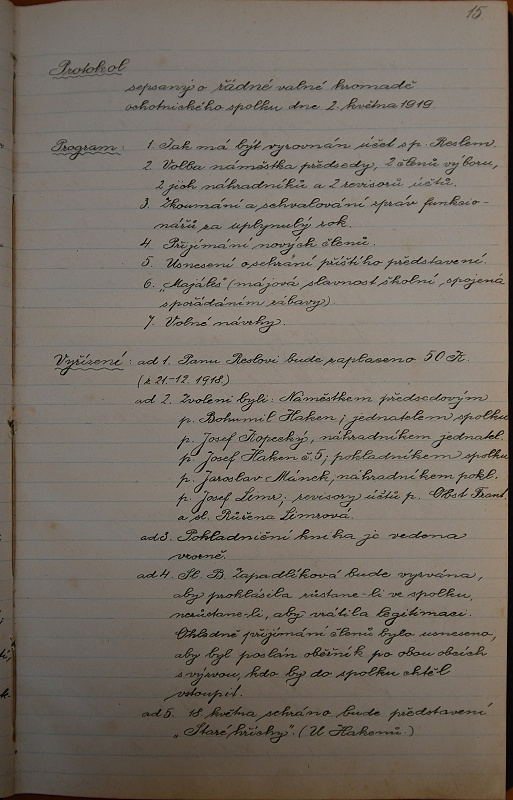 15.
Protokol
sepsaný o řádné valné hromadě
ochotnického spolku dne 2. května 1919.
Program: 1. Jak má být vyrovnán účet s p. Reslem.
2. Volba náměstka předsedy, 2 členů výboru,
2 jich náhradníků a 2 revisorů účtů.
3. Zkoumání a schvalování zpráv funkcio-
nářů za uplynulý rok.
4. Přijímání nových členů.
5. Usnesení o sehrání příštího představení.
6. "Majáles" (májová slavnost školní, spojená
s pořádáním zábavy).
7. Volné návrhy.
Vyřízení: ad 1. Panu Reslovi bude zaplaceno 50 K.
(z 21.-12. 1918)
ad 2. Zvoleni byli: Náměstkem předsedovým
p. Bohumil Haken; jednatelem spolku
p. Josef Kopecký, náhradníkem jednatel.
p. Josef Haken č. 5; pokladníkem spolku
p. Jaroslav Münck, náhradníkem pokl.
p. Josef Limr; revisory účtů p. Obst Frant.
a sl. Růžena Limrová.
ad 3. Pokladniční kniha je vedena
vzorně.
ad 4. Sl. B. Zapadlíková bude vyzvána,
aby prohlásila zůstane-li ve spolku,
nezůstane-li, aby vrátila legitimaci.
Ohledně přijímání členů bylo usneseno,
aby byl poslán oběžník po obou obcích
s výzvou, kdo by do spolku chtěl
vstoupit.
ad 5. 18. května sehráno bude představení
"Staré hříchy". (U Hakenů.)